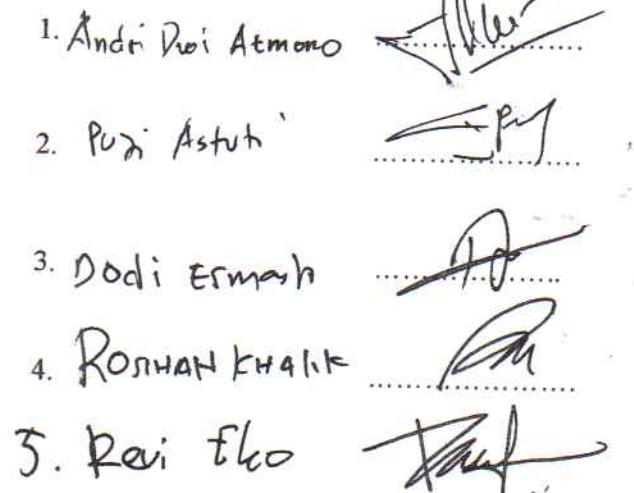 1. Andri Dwi Atmono
2. Puji Astuti
3. Dodi Ermash
4. ROSIHAN KHALIK
5. Revi Eko